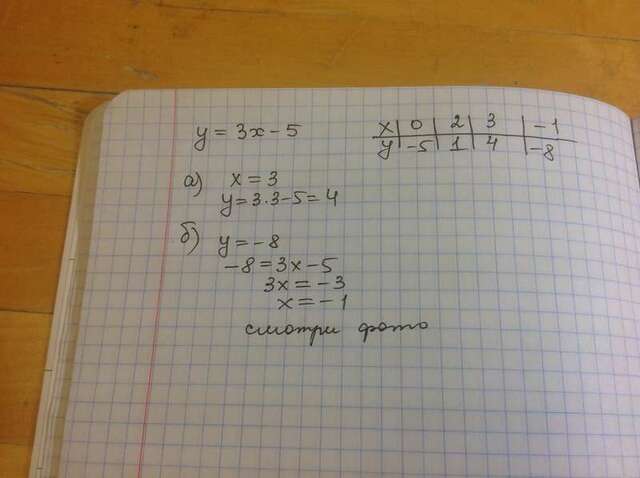 y = 3x - 5
x | 0 | 2 | 3 | -1
y | -5 | 1 | 4 | -8
а) x = 3
y = 3·3-5 = 4
б) y = -8
-8 = 3x - 5
3x = -3
x = -1
смотри фото